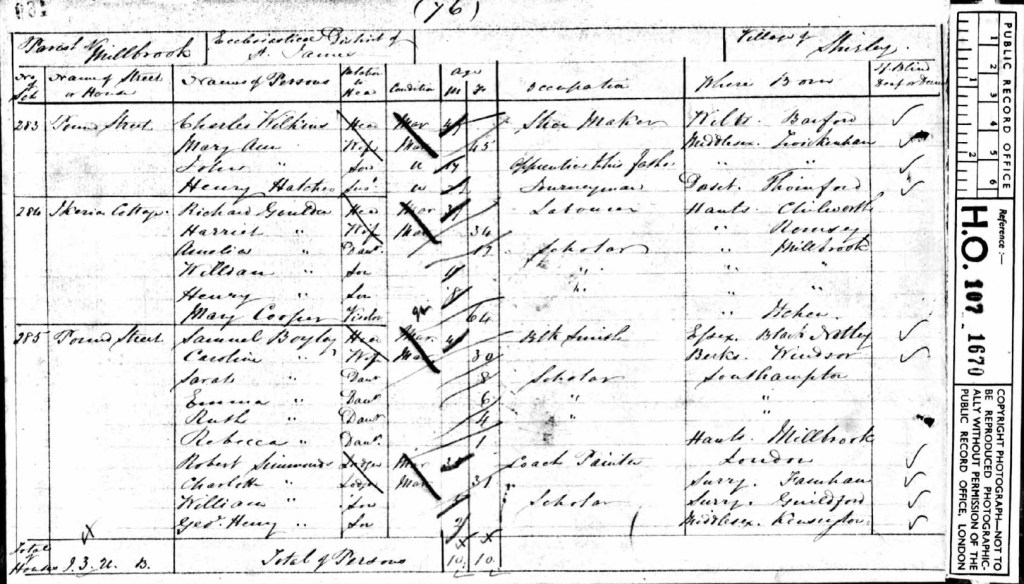 (76)
Parish of Millbrook Ecclesiastical District of St. James Village of Shirley.
No of Sch Name of Street or House Names of Persons Relation to Head Condition Age M F Occupation Where Born If Blind Deaf or Dumb
283 Pound Street Charles Wilkins Hea Mar Shoe Maker Wilts. Barford
Mary Ann " Wife Mar 45 Middlesex. Twickenham
John " Son u 19 Apprentice this Father " "
Henry Hatcher u Journeyman Dorset. Thornford
284 Ikeria Cottage Richard Goulden Hea Mar Labourer Hants. Chilworth
Harriet " Wife Mar 34 " Romsey
Amelia " Daur. Scholar " Millbrook
William " Son " " "
Henry " Son 8 " " "
Mary Cooper Visitor 64 " Itchen
285 Pound Street Samuel Boyley Hea Mar Blk Smith Essex. Black Notley
Caroline " Wife Mar 39 Berks. Windsor
Sarah " Daur 8 Scholar Southampton
Emma " Daur 6 " "
Ruth " Daur 4 " "
Rebecca " Daur. 1 Hants. Millbrook
Robert Simmonds Lodger Mar Coach Painter London
Charlotte " Lodger Mar 31 Surry. Farnham
William " Son Scholar Surry. Guildford
Geo. Henry " Son 2 Middlesex. Kensington
Total of Houses I. 3. U. B. Total of Persons 10 10
PUBLIC RECORD OFFICE
1 2 3 4 5 6
1 2
Reference :—
H.O. 107 1670
COPYRIGHT PHOTOGRAPH—NOT TO
BE REPRODUCED PHOTOGRAPHIC-
ALLY WITHOUT PERMISSION OF THE
PUBLIC RECORD OFFICE, LONDON